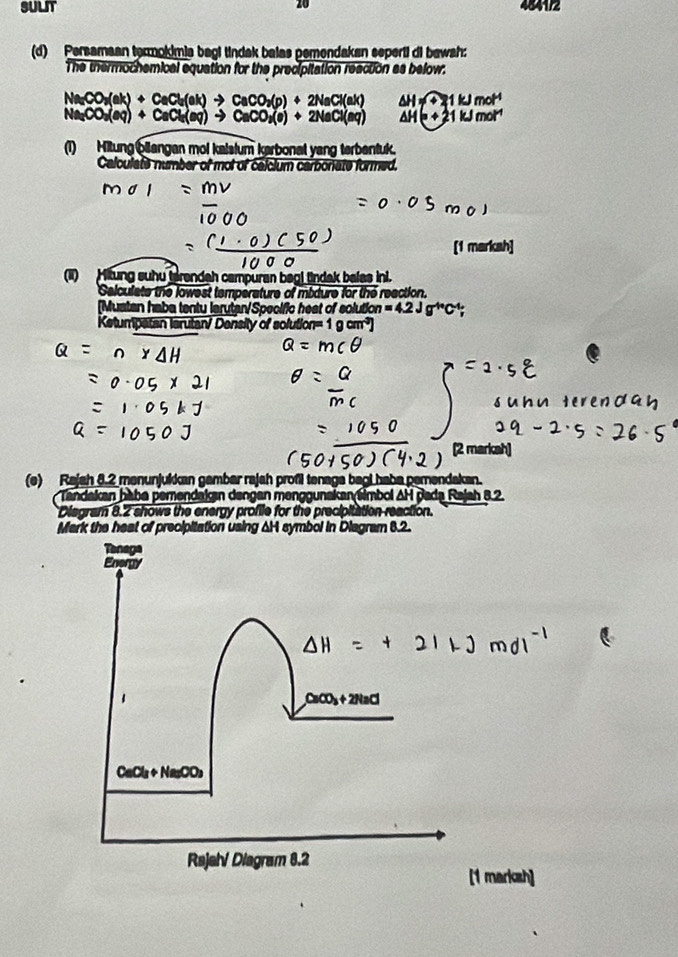 SULIT 20 4541/2
(d) Persamaan termokimia bagi tindak balas pemendakan seperti di bawah:
The thermochemical equation for the precipitation reaction as below:
Na₂CO₃(ak) + CaCl₂(ak) → CaCO₃(p) + 2NaCl(ak) ΔH = + 21 kJ mol⁻¹
Na₂CO₃(aq) + CaCl₂(aq) → CaCO₃(s) + 2NaCl(aq) ΔH = + 21 kJ mol⁻¹
(i) Hitung bilangan mol kalsium karbonat yang terbentuk.
Calculate number of mol of calcium carbonate formed.
mol = mv/1000 = 0.05 mol
= (1.0)(50)/1000
[1 markah]
(ii) Hitung suhu terendah campuran bagi tindak balas ini.
Calculate the lowest temperature of mixture for the reaction.
[Muatan haba tentu larutan/Specific heat of solution = 4.2 J g⁻¹°C⁻¹;
Ketumpatan larutan/ Density of solution= 1 g cm⁻³]
Q = n x ΔH Q = mcθ
= 0.05 x 21 θ = Q/mc = 2.5°C
= 1.05 kJ suhu terendah
Q = 1050 J = 1050/(50+50)(4.2) 29 - 2.5 = 26.5°
[2 markah]
(e) Rajah 8.2 menunjukkan gambar rajah profil tenaga bagi haba pemendakan.
Tandakan haba pemendakan dengan menggunakan simbol ΔH pada Rajah 8.2.
Diagram 8.2 shows the energy profile for the precipitation reaction.
Mark the heat of precipitation using ΔH symbol in Diagram 8.2.
Tenaga
Energy
ΔH = + 21 kJ mol⁻¹
CaCO₃ + 2NaCl
CaCl₂ + Na₂CO₃
Rajah/ Diagram 8.2
[1 markah]